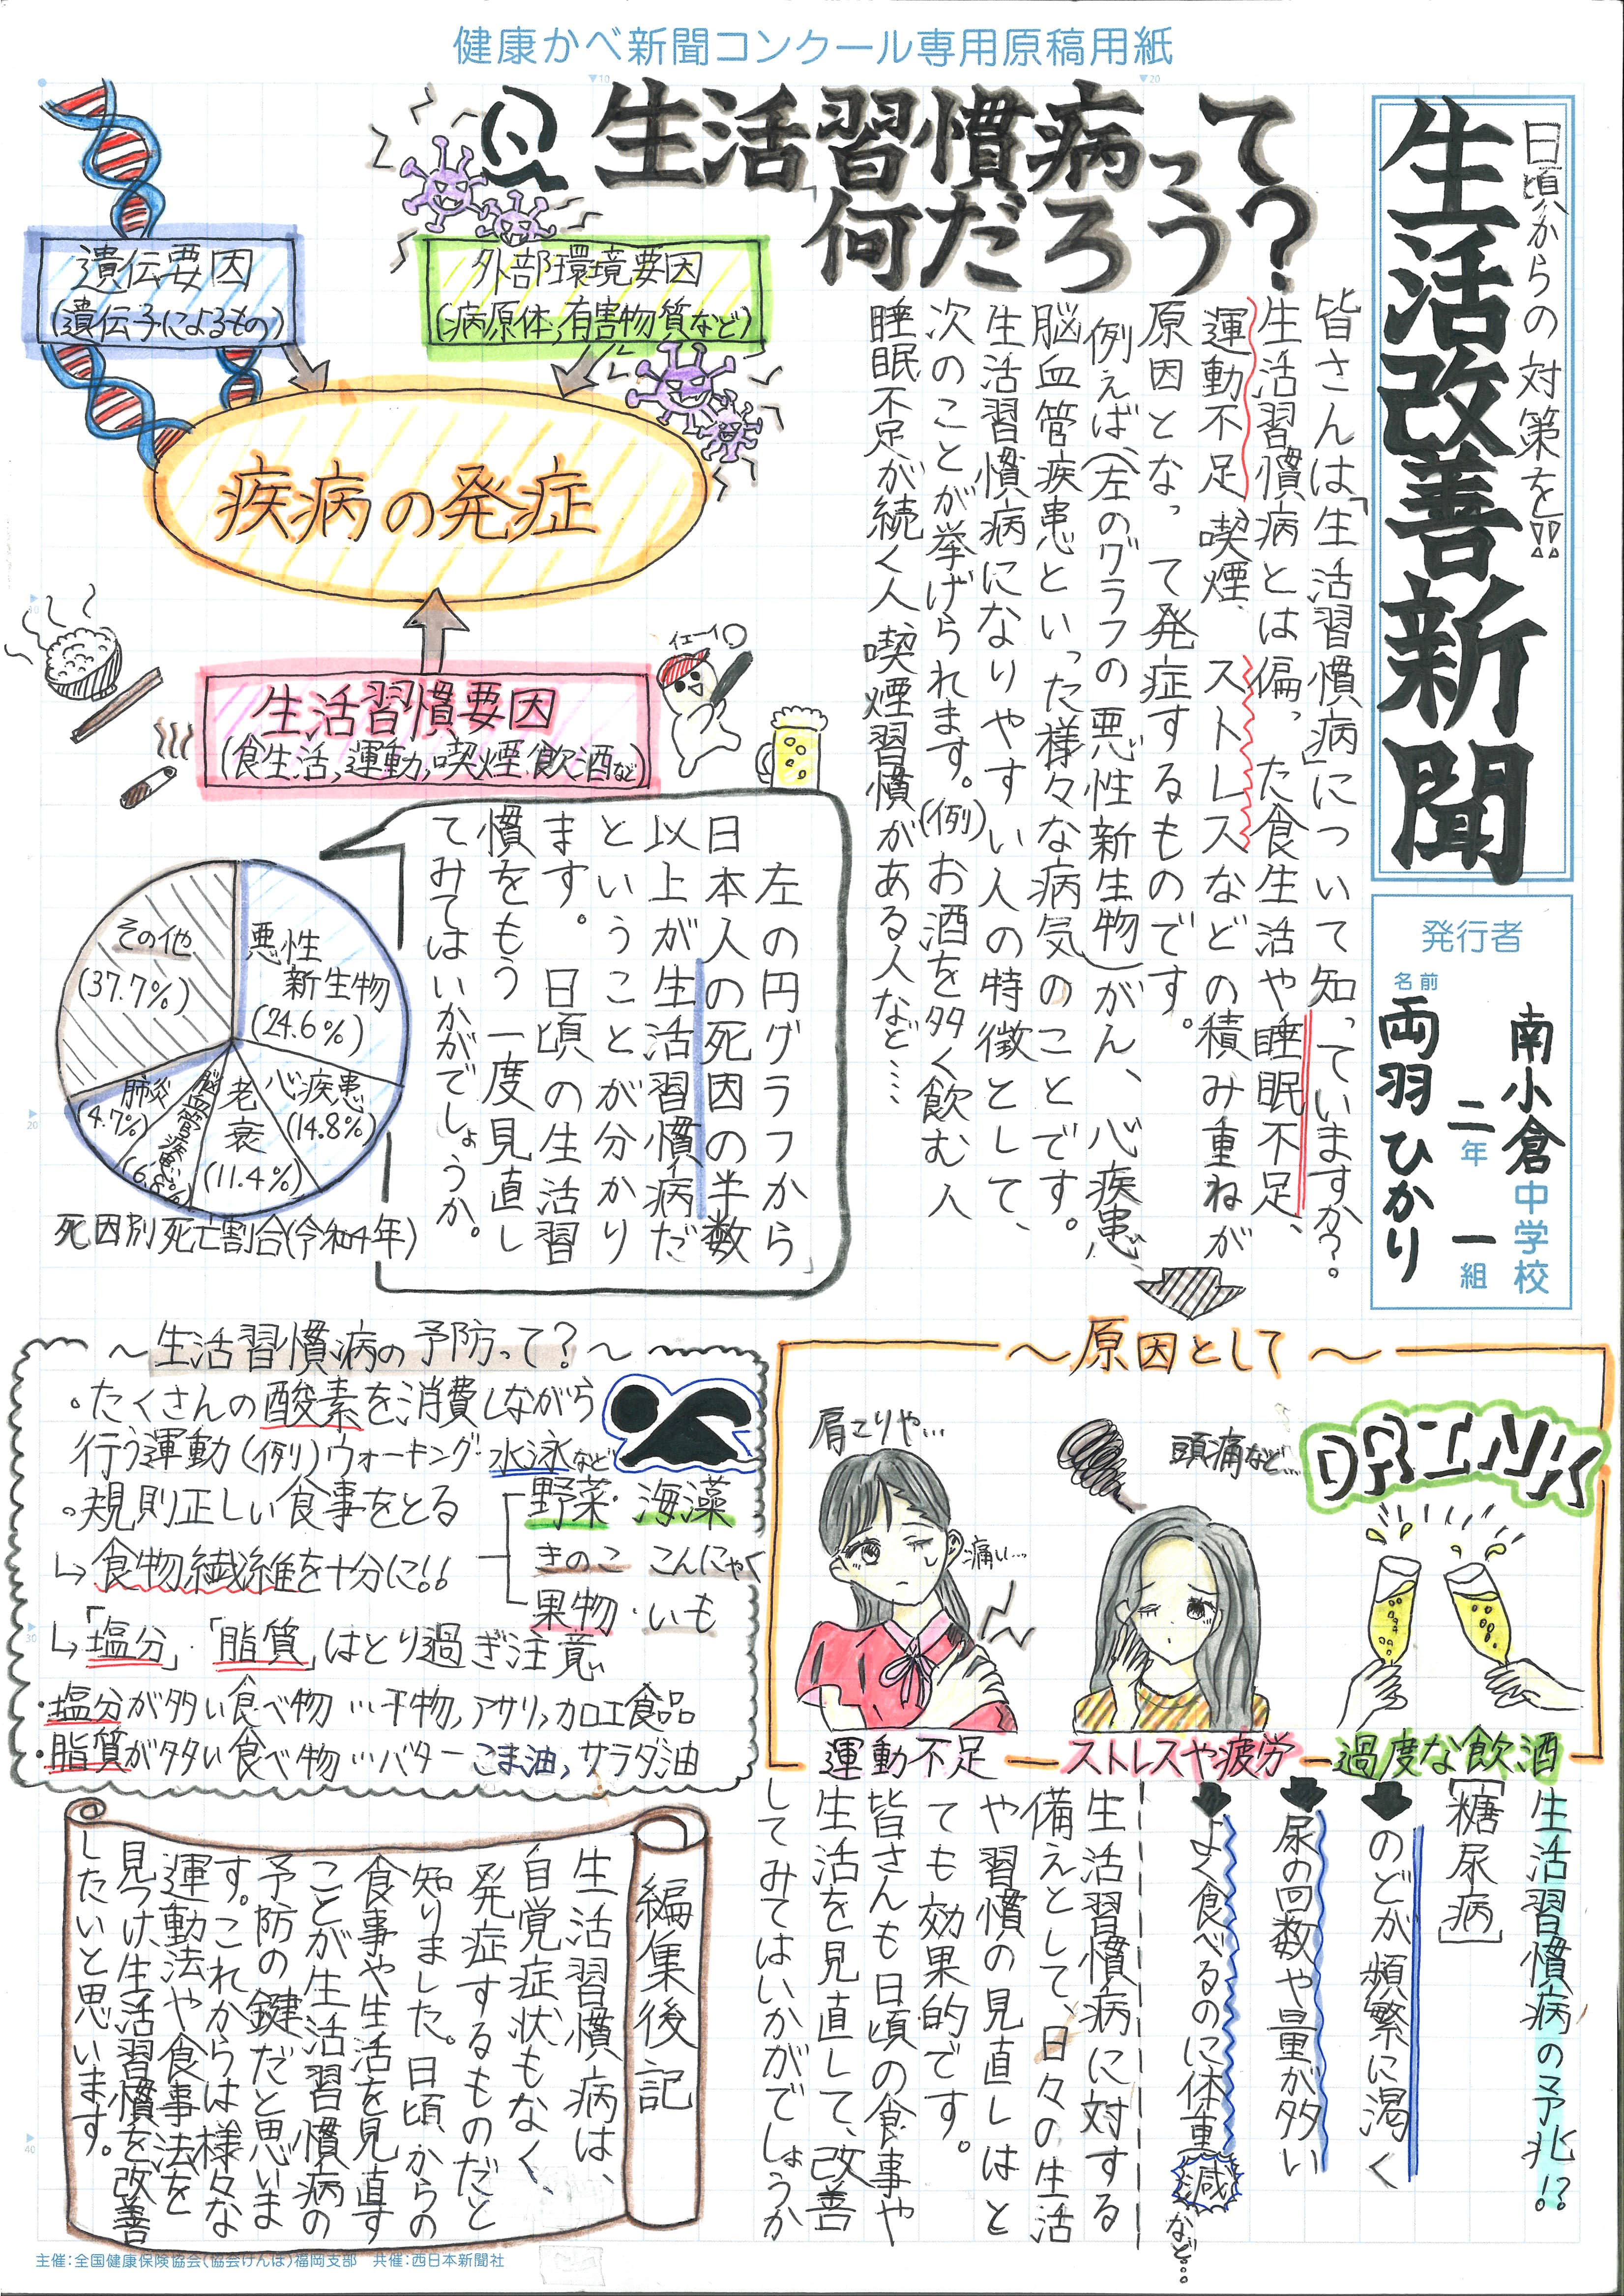 健康かべ新聞コンクール専用原稿用紙
日頃からの対策を!!
生活改善新聞
発行者
南小倉中学校
二年 一組
名前
両羽 ひかり
Q 生活習慣病って
何だろう?
皆さんは「生活習慣病」について知っていますか?。
生活習慣病とは偏った食生活や睡眠不足、
運動不足、喫煙、ストレスなどの積み重ねが
原因となって発症するものです。
例えば(左のグラフの悪性新生物)がん、心疾患、
脳血管疾患といった様々な病気のことです。
生活習慣病になりやすい人の特徴として、
次のことが挙げられます。(例)お酒を多く飲む人
睡眠不足が続く人、喫煙習慣がある人など……
遺伝要因
(遺伝子によるもの)
外部環境要因
(病原体,有害物質など)
疾病の発症
イェーイ
生活習慣要因
(食生活,運動,喫煙,飲酒など)
左の円グラフから
日本人の死因の半数
以上が生活習慣病だ
ということが分かり
ます。 日頃の生活習
慣をもう一度見直し
てみてはいかがでしょうか。
悪性
新生物
(24.6%)
心疾患
(14.8%)
老衰
(11.4%)
脳血管疾患
(6.8%)
肺炎
(4.7%)
その他
(37.7%)
死因別死亡割合(令和4年)
～原因として～
肩こりや…
痛い…
頭痛など…
DRINK
運動不足
ストレスや疲労
過度な飲酒
～生活習慣病の予防って?～
・たくさんの酸素を消費しながら
行う運動(例)ウォーキング・水泳など
・規則正しい食事をとる
↳食物繊維を十分に!!
野菜・海藻
きのこ こんにゃく
果物・いも
↳「塩分」・「脂質」はとり過ぎ注意
・塩分が多い食べ物…干物,アサリ,加工食品
・脂質が多い食べ物…バター ごま油,サラダ油
生活習慣病の予兆!?
[糖尿病]
のどが頻繁に渇く
尿の回数や量が多い
よく食べるのに体重減など…
生活習慣病に対する
備えとして、日々の生活
や習慣の見直しはと
ても効果的です。
皆さんも日頃の食事や
生活を見直して、改善
してみてはいかがでしょうか
編集後記
生活習慣病は、
自覚症状もなく、
発症するものだと
知りました。日頃からの
食事や生活を見直す
ことが生活習慣病の
予防の鍵だと思いま
す。これからは様々な
運動法や食事法を
見つけ生活習慣を改善
したいと思います。
主催:全国健康保険協会(協会けんぽ)福岡支部 共催:西日本新聞社